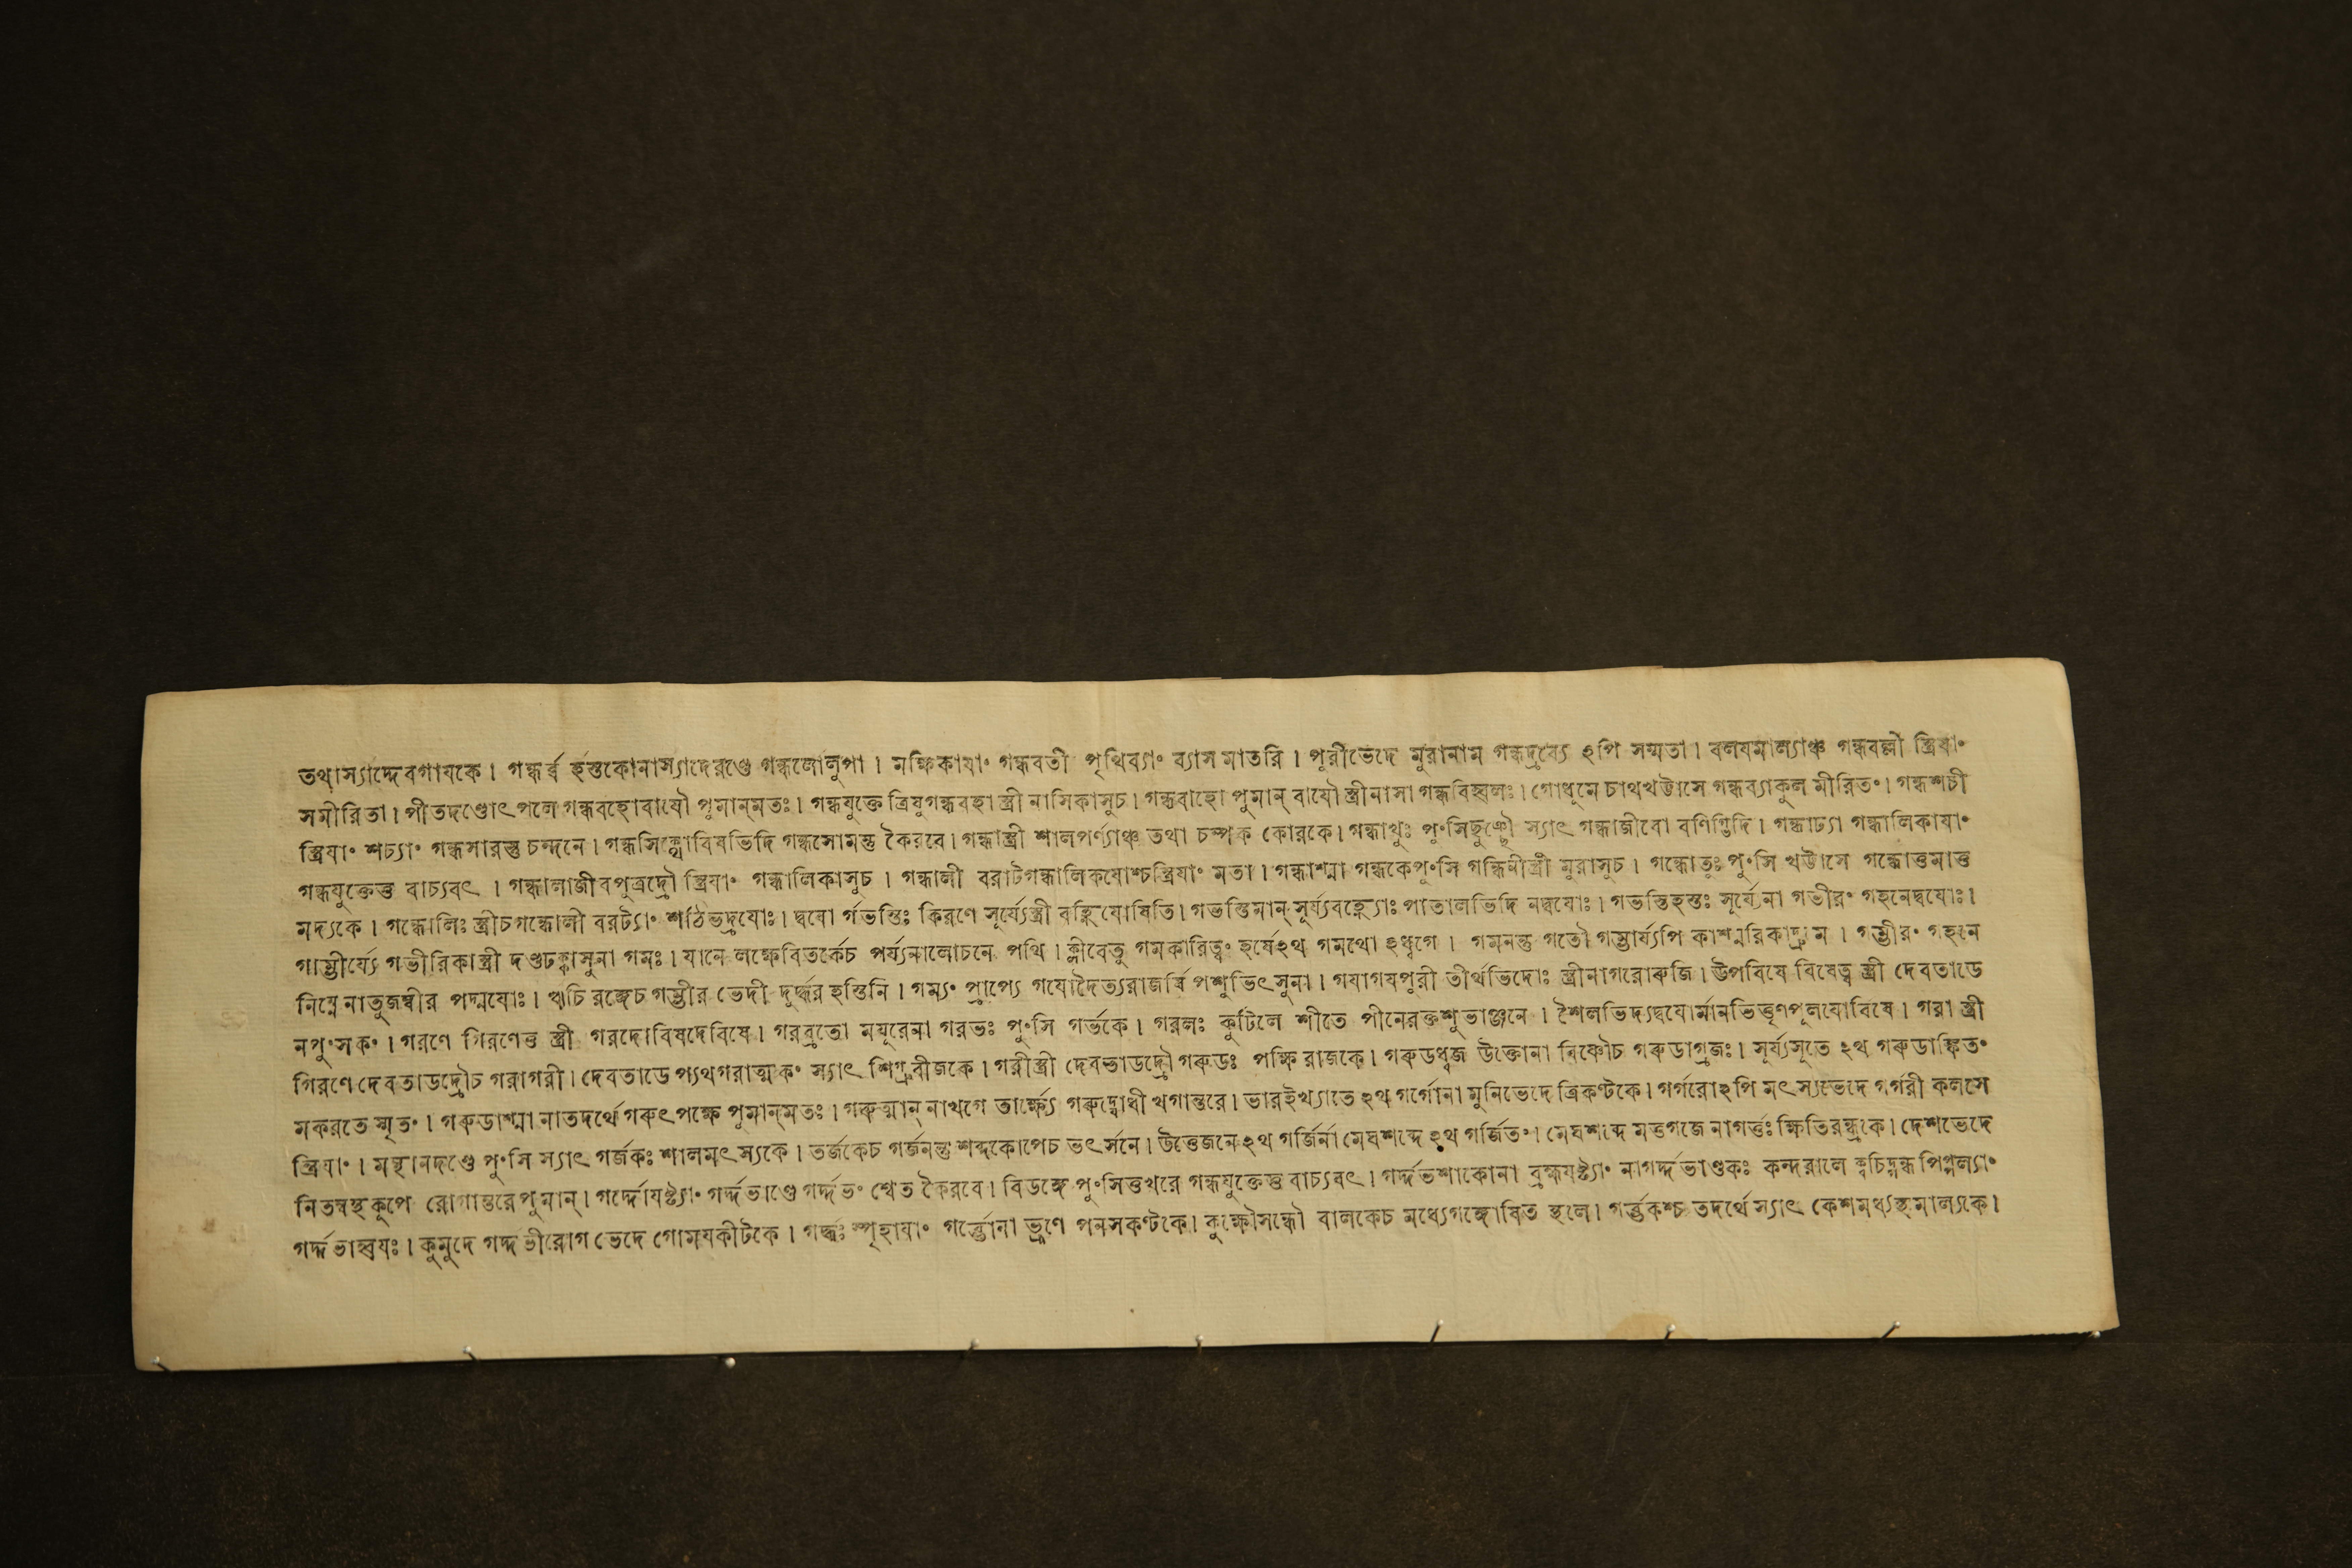 তথাস্যাদ্দেবগাযকে। গন্ধর্ব্ব হস্তকোনাস্যাদেরণ্ডে গন্ধলোলুপা। মক্ষিকাযাং গন্ধবতী পৃথিব্যাং ব্যাস মাতরি। পূরীভেদে মুরানাম গন্ধদ্রব্যে ঽপি সম্মতা। বলযমাল্যাঞ্চ গন্ধবল্লী স্ত্রিযাং
সমীরিতা। পীতদণ্ডোৎপলে গন্ধবহোবাযৌ পুমান্মতঃ। গন্ধযুক্তে ত্রিষুগন্ধবহা স্ত্রী নাসিকাসুচ। গন্ধবাহো পুমান্ বাযৌ স্ত্রীনাসা গন্ধবিহ্বলঃ। গোধুমে চাথখট্টাসে গন্ধব্যাকুল মীরিতং। গন্ধশচী
স্ত্রিযাং শচ্যাং গন্ধসারস্তু চন্দনে। গন্ধসিহ্লোবিষভিদি গন্ধসোমস্তু কৈরবে। গন্ধাস্ত্রী শালপর্ণ্যাঞ্চ তথা চম্পক কোরকে। গন্ধাখুঃ পুংসিছুছ্ছৌ স্যাৎ গন্ধাজীবো বণিগ্ভিদি। গন্ধাঢ্যা গন্ধালিকাযাং
গন্ধযুক্তেত্তু বাচ্যবৎ। গন্ধালাজীবপুত্রদ্রৌ স্ত্রিযাং গন্ধালিকাসুচ। গন্ধালী বরাটগন্ধালিকযোশ্চস্ত্রিযাং মতা। গন্ধাশ্মা গন্ধকেপুংসি গন্ধিনীস্ত্রী মুরাসুচ। গন্ধোতুঃ পুংসি খট্টাসে গন্ধোত্তমাত্তু
মদ্যকে। গন্ধোলিঃ স্ত্রীচগন্ধোলী বরট্যাং শঠিভদ্রযোঃ। দ্বযো র্গভস্তিঃ কিরণে সূর্য্যেস্ত্রী বহ্নিযোষিতি। গভস্তিমান্ সূর্য্যবহ্ন্যোঃ পাতালভিদি নদ্বযোঃ। গভস্তিহস্তঃ সূর্য্যেনা গভীরং গহনেদ্বযোঃ।
গাম্ভীর্য্যে গভীরিকাস্ত্রী দণ্ডঢক্কাসুনা গমঃ। যানে লক্ষেবিতর্কেচ পর্য্যনালোচনে পথি। ক্লীবেতু গমকারিত্বং হর্ষেঽথ গমথো ঽধ্বগে। গমনন্তু গতৌ গম্ভার্য্যপি কাশ্মরিকাদ্রুম। গম্ভীরং গহনে
নিম্নে নাতুজম্বীর পদ্মযোঃ। ঋচি রঙ্গেচ গম্ভীর ভেদী দুর্দ্ধর হস্তিনি। গম্যং প্রাপ্যে গযোদৈত্যরাজর্ষি পশুভিৎসুনা। গযাগযপুরী তীর্থভিদোঃ স্ত্রীনাগরোরুজি। উপবিষে বিষেত্ব স্ত্রী দেবতাডে
নপুংসকং। গরণে গিরণেত্তু স্ত্রী গরদোবিষদেবিষে। গরব্রতো মযূরেনা গরভঃ পুংসি গর্ভকে। গরলঃ কুটিলে শীতে পীনেরক্তশুভাঞ্জনে। শৈলভিদ্যদ্বযোর্মানভিত্তৃণপূলযোবিষে। গরা স্ত্রী
গিরণে দেবতাডদ্রৌচ গরাগরী। দেবতাডে প্যথগরাত্মকং স্যাৎ শিগ্রুবীজকে। গরীস্ত্রী দেবতাডদ্রৌ গরুডঃ পক্ষি রাজকে। গরুডধ্বজ উক্তোনা বিষ্ণৌচ গরুডাগ্রজঃ। সূর্য্যসূতে ঽথ গরুডাঙ্কিতং
মকরতে স্মৃতং। গরুডাশ্মা নাতদর্থে গরুৎ পক্ষে পুমান্মতঃ। গরুত্মান্ নাখগে তার্ক্ষ্যে গরুদ্যোধী খগান্তরে। ভারইখ্যাতে ঽথ গর্গোনা মুনিভেদে ত্রিকণ্টকে। গর্গরোঽপি মৎস্যভেদে গর্গরী কলসে
স্ত্রিযাং। মন্থানদণ্ডে পুংসি স্যাৎ গর্জকঃ শালমৎস্যকে। তর্জকেচ গর্জনন্তু শব্দকোপেচ ভৎর্সনে। উত্তেজনেঽথ গর্জির্না মেঘশব্দে ঽথ গর্জিতং। মেঘশব্দে মত্তগজে নাগর্ত্তঃ ক্ষিতিরন্ধ্রকে। দেশভেদে
নিতম্বস্থ কুপে রোগান্তরে পুমান্। গর্দ্দোযষ্ট্যাং গর্দ্দভাণ্ডে গর্দ্দভং শ্বেত কৈরবে। বিডঙ্গে পুংসিত্তখরে গন্ধযুক্তেত্তু বাচ্যবৎ। গর্দ্দভশাকোনা ব্রহ্মযষ্ট্যাং নাগর্দ্দভাণ্ডকঃ কন্দরালে ক্বচিদ্গন্ধ পিপ্পল্যাং
গর্দ্দভাহ্বযঃ। কুমুদে গর্দ্দভীরোগ ভেদে গোমযকীটকে। গর্দ্ধঃ স্পৃহাযাং গর্ব্ভোনা ভ্রূণে পনসকণ্টকে। কুক্ষৌসন্ধৌ বালকেচ মধ্যেগঙ্গোষিত স্থলে। গর্ব্ভকশ্চ তদর্থে স্যাৎ কেশমধ্যস্থ মাল্যকে।